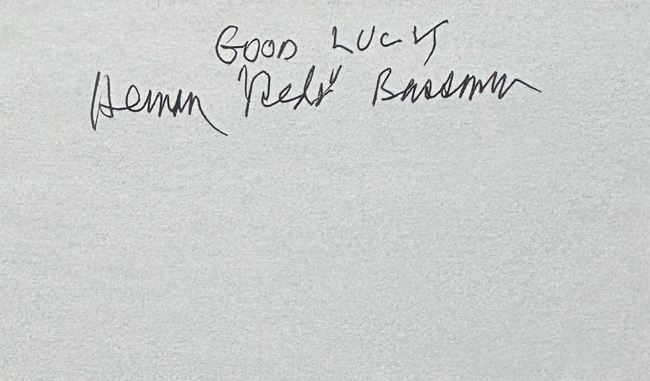 GOOD LUCK
Herman "Reds" Bassman